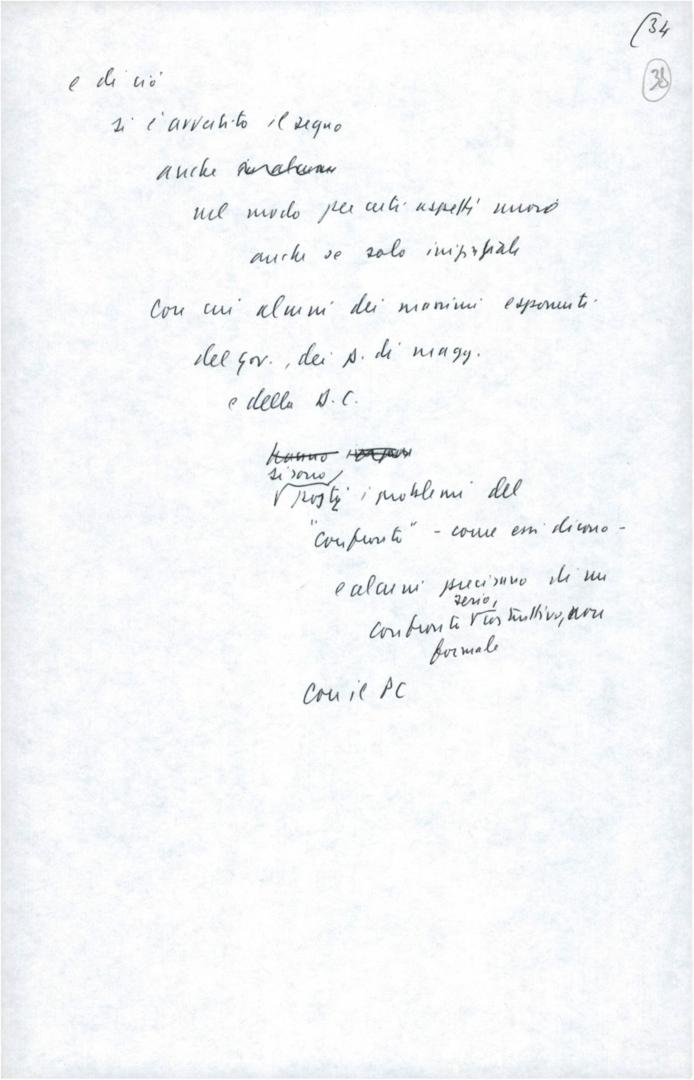 (34
38
e di ciò
si è avvertito il segno
anche
nel modo per certi aspetti nuovo
anche se solo iniziale
con cui alcuni dei massimi esponenti
del gov., dei p. di magg.
e della D.C.
hanno
si sono
posti i problemi del
"confronto" - come essi dicono -
e alcuni precisano di un
serio,
confronto costruttivo, non
formale
con il PC